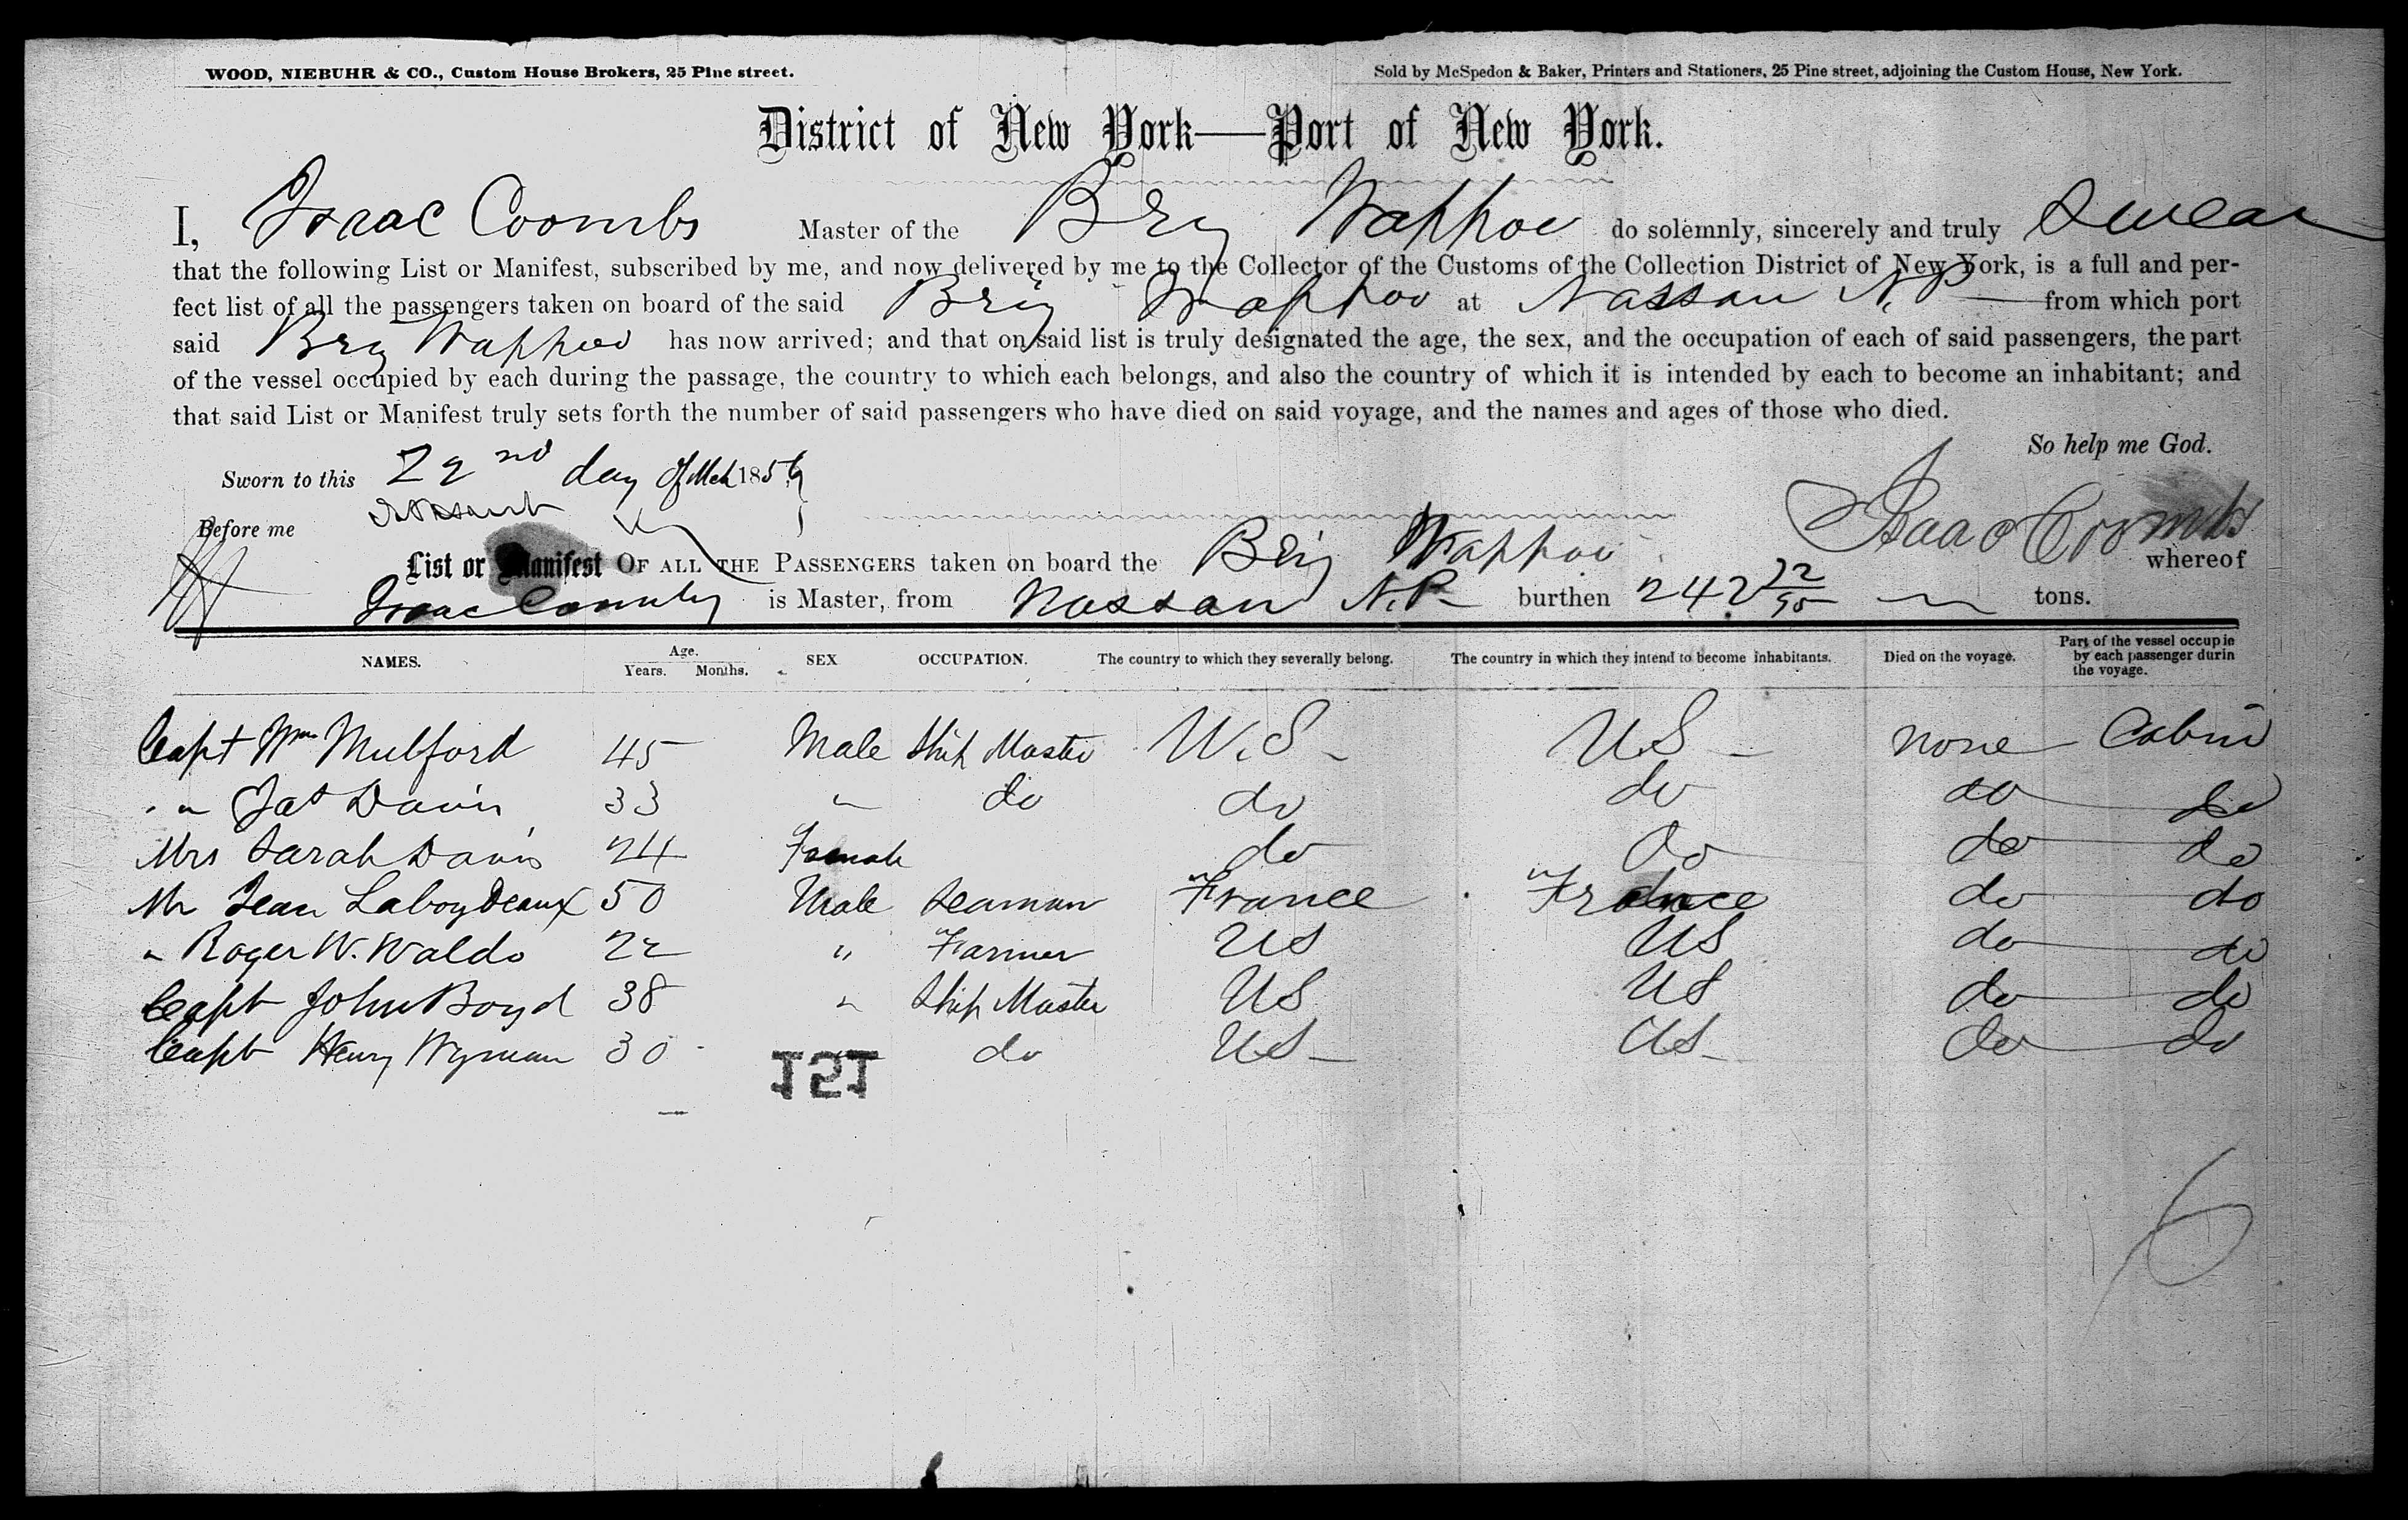 WOOD, NIEBUHR & CO., Custom House Brokers, 25 Pine street.
Sold by McSpedon & Baker, Printers and Stationers, 25 Pine street, adjoining the Custom House, New York.
District of New York—Port of New York.
I, Isaac Coombs Master of the Brig Wappoo do solemnly, sincerely and truly Swear
that the following List or Manifest, subscribed by me, and now delivered by me to the Collector of the Customs of the Collection District of New York, is a full and per-
fect list of all the passengers taken on board of the said Brig Wappoo at Nassau N.P from which port
said Brig Wappoo has now arrived; and that on said list is truly designated the age, the sex, and the occupation of each of said passengers, the part
of the vessel occupied by each during the passage, the country to which each belongs, and also the country of which it is intended by each to become an inhabitant; and
that said List or Manifest truly sets forth the number of said passengers who have died on said voyage, and the names and ages of those who died.
So help me God.
Sworn to this 22nd day of Mch 185
Before me
Isaac Coombs
List or Manifest OF ALL THE PASSENGERS taken on board the Brig Wappoo whereof
Isaac Coombs is Master, from Nassau N.P. burthen 242 72/95 tons.
NAMES. Age. Years. Months. SEX OCCUPATION. The country to which they severally belong. The country in which they intend to become inhabitants. Died on the voyage. Part of the vessel occupie by each passenger durin the voyage.
Capt Wm Mulford 45 Male Ship Master U.S. US none Cabin
" " Jas Davis 33 " do do do do do
Mrs Sarah Davis 24 Female do do do do
Mr Jean Laboydeaux 50 Male Seaman France France do do
" Roger W. Waldo 22 " Farmer US US do do
Capt John Boyd 38 " Ship Master US US do do
Capt Henry Wyman 30 do US US do do
121
6